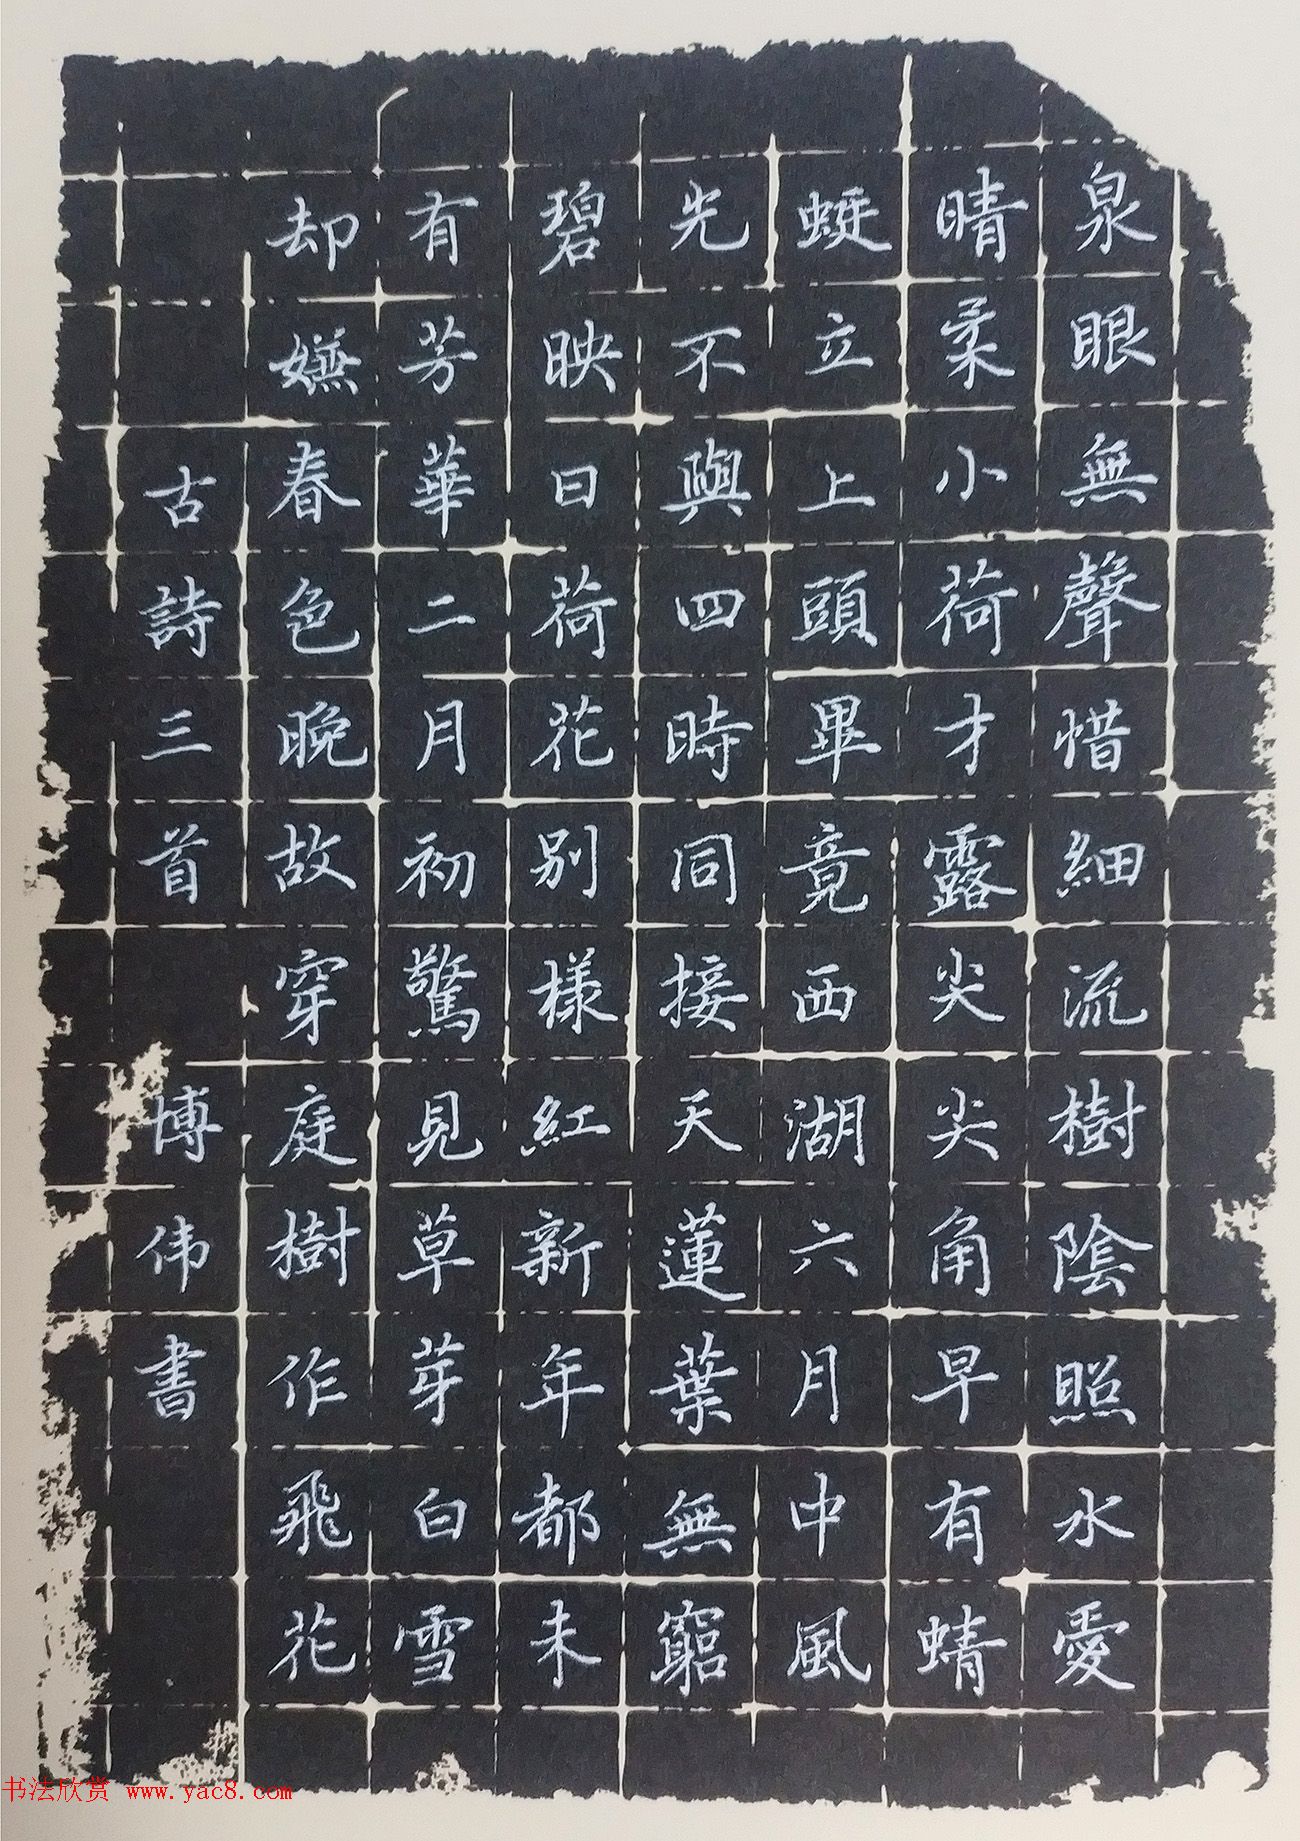 泉眼無聲惜細流樹陰照水愛
晴柔小荷才露尖尖角早有蜻
蜓立上頭畢竟西湖六月中風
光不與四時同接天蓮葉無窮
碧映日荷花別樣紅新年都未
有芳華二月初驚見草芽白雪
却嫌春色晚故穿庭樹作飛花
古詩三首 博伟書
书法欣赏 www.yac8.com